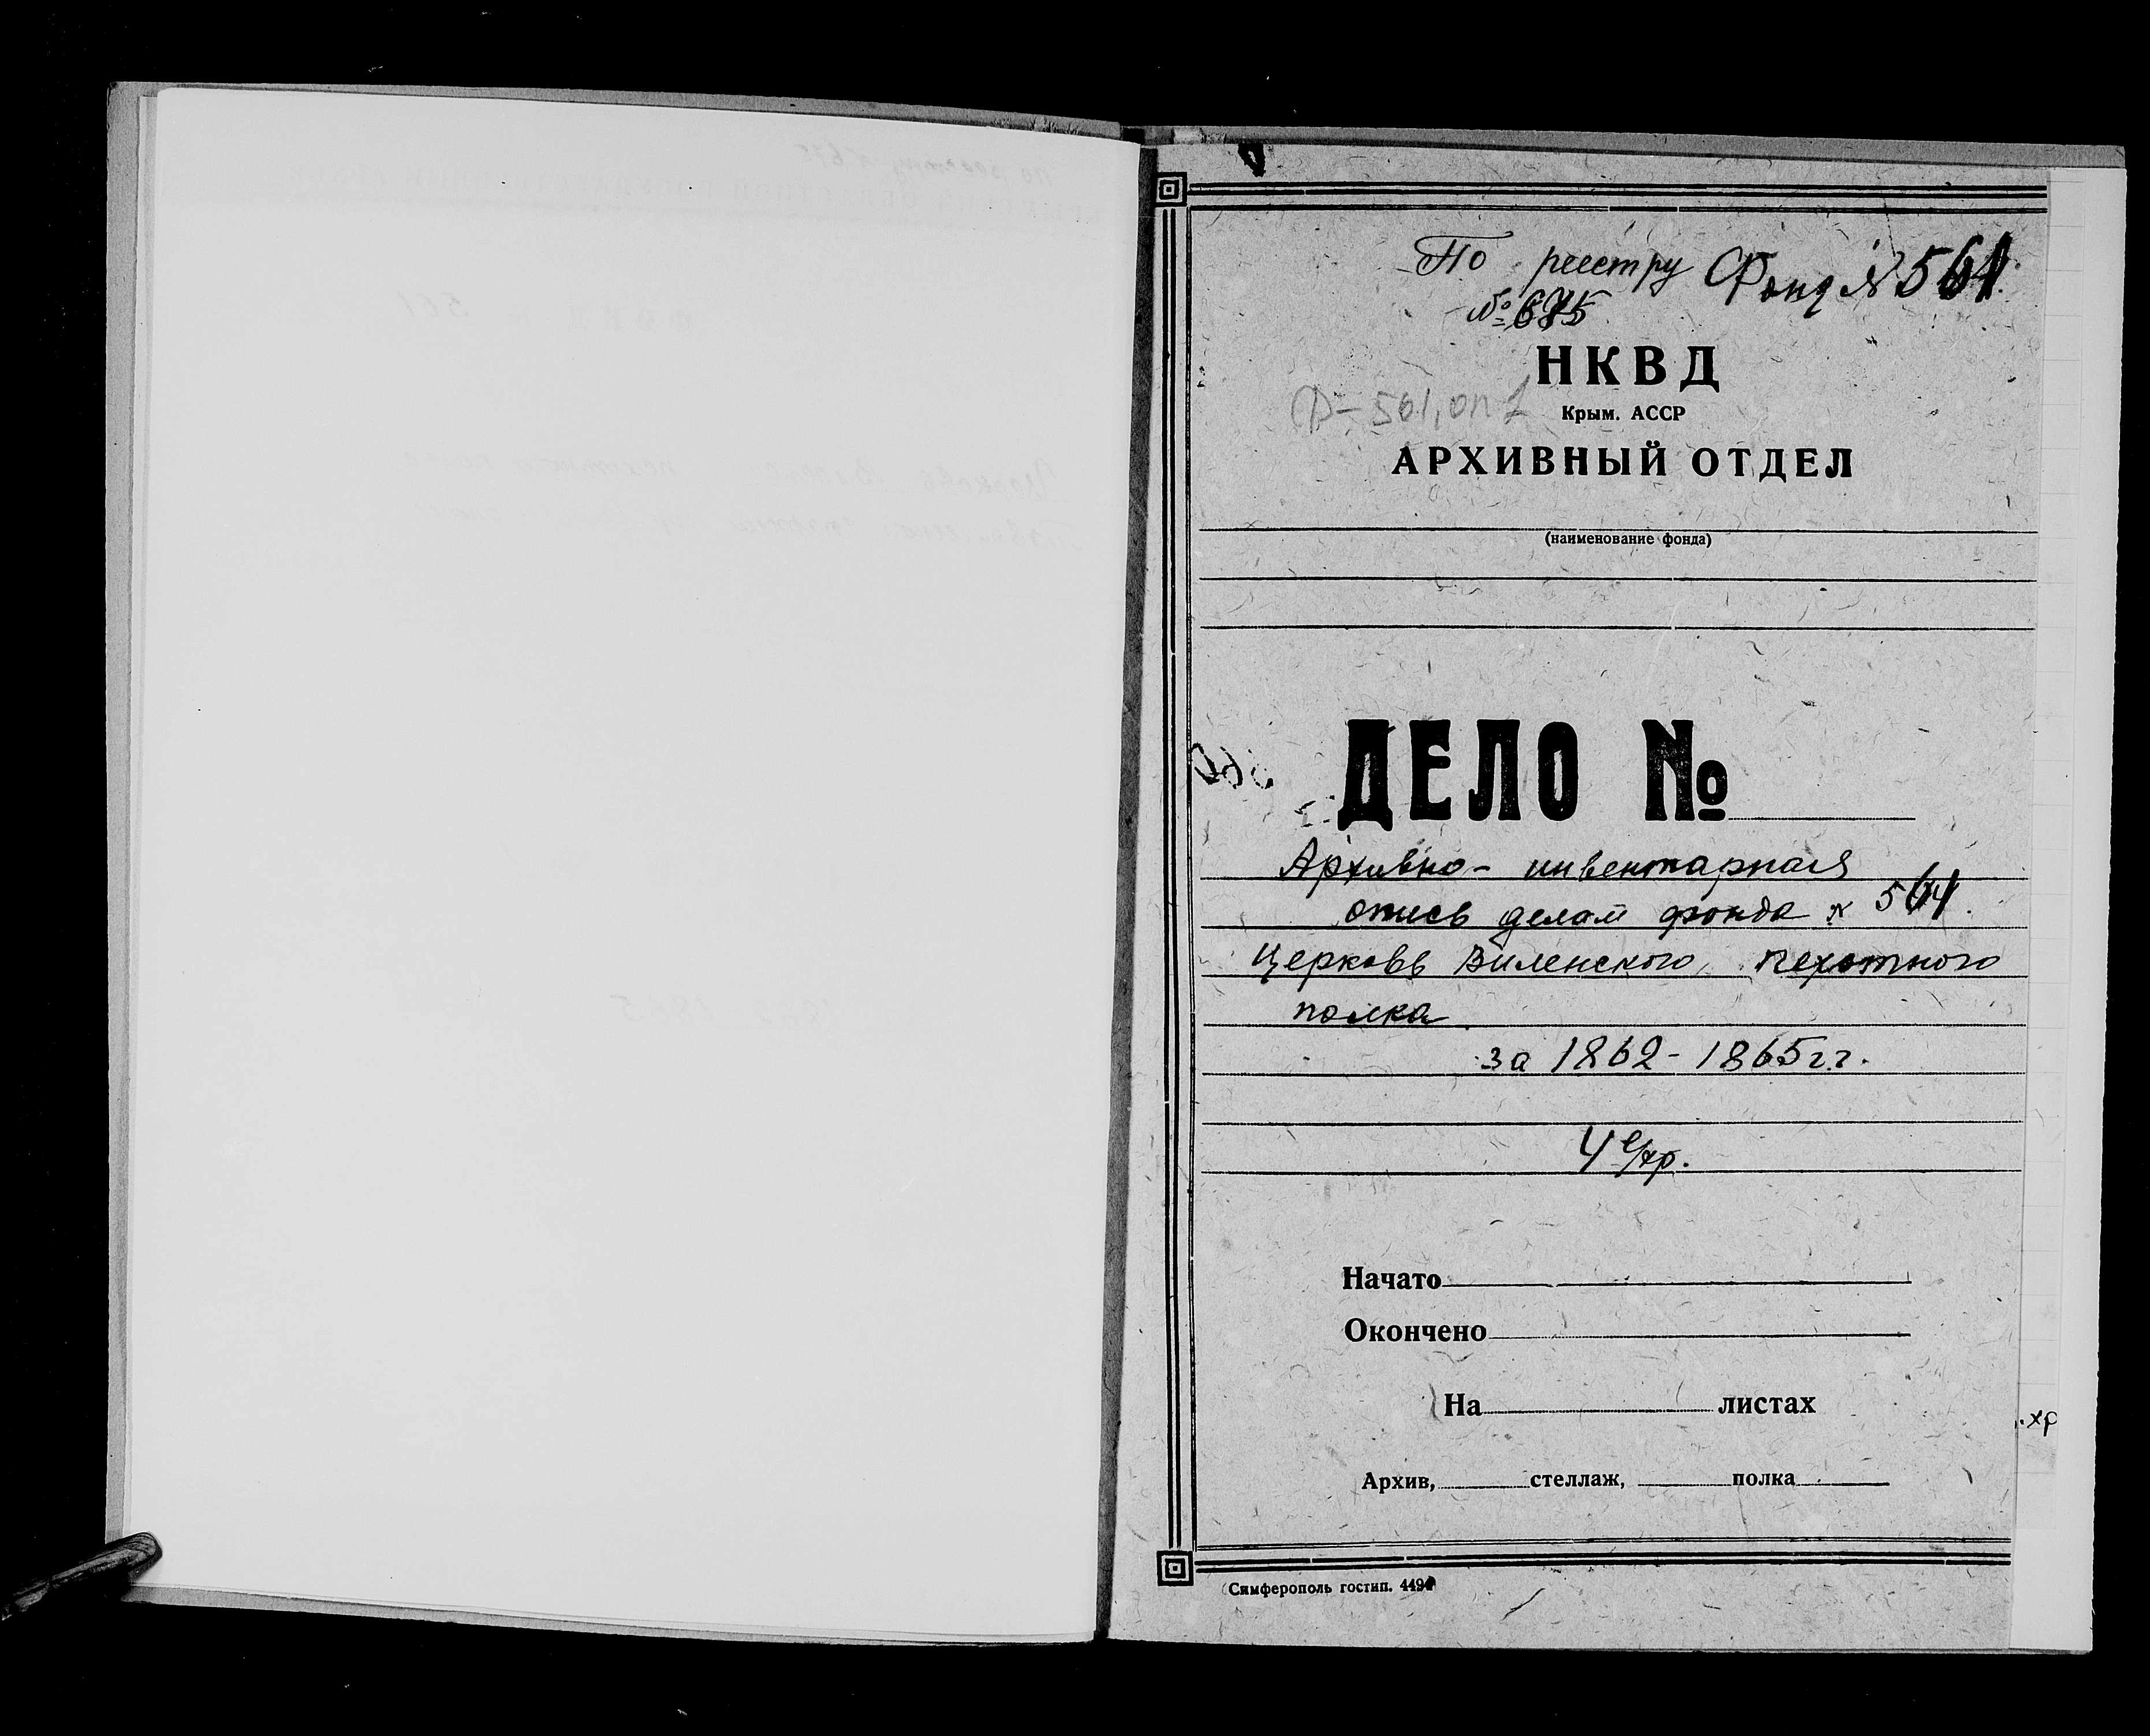 По реестру Фонд № 561.
№ 675
НКВД
Ф-561, оп 1
Крым. АССР
АРХИВНЫЙ ОТДЕЛ
(наименование фонда)
ДЕЛО №
Архивно- инвентарная
опись делам фонда № 561.
Церковь Виленского пехотного
полка
за 1862-1865 г.г.
4 е/хр.
Начато
Окончено
На листах
.хр
Архив, стеллаж, полка
Симферополь гостип. 4494